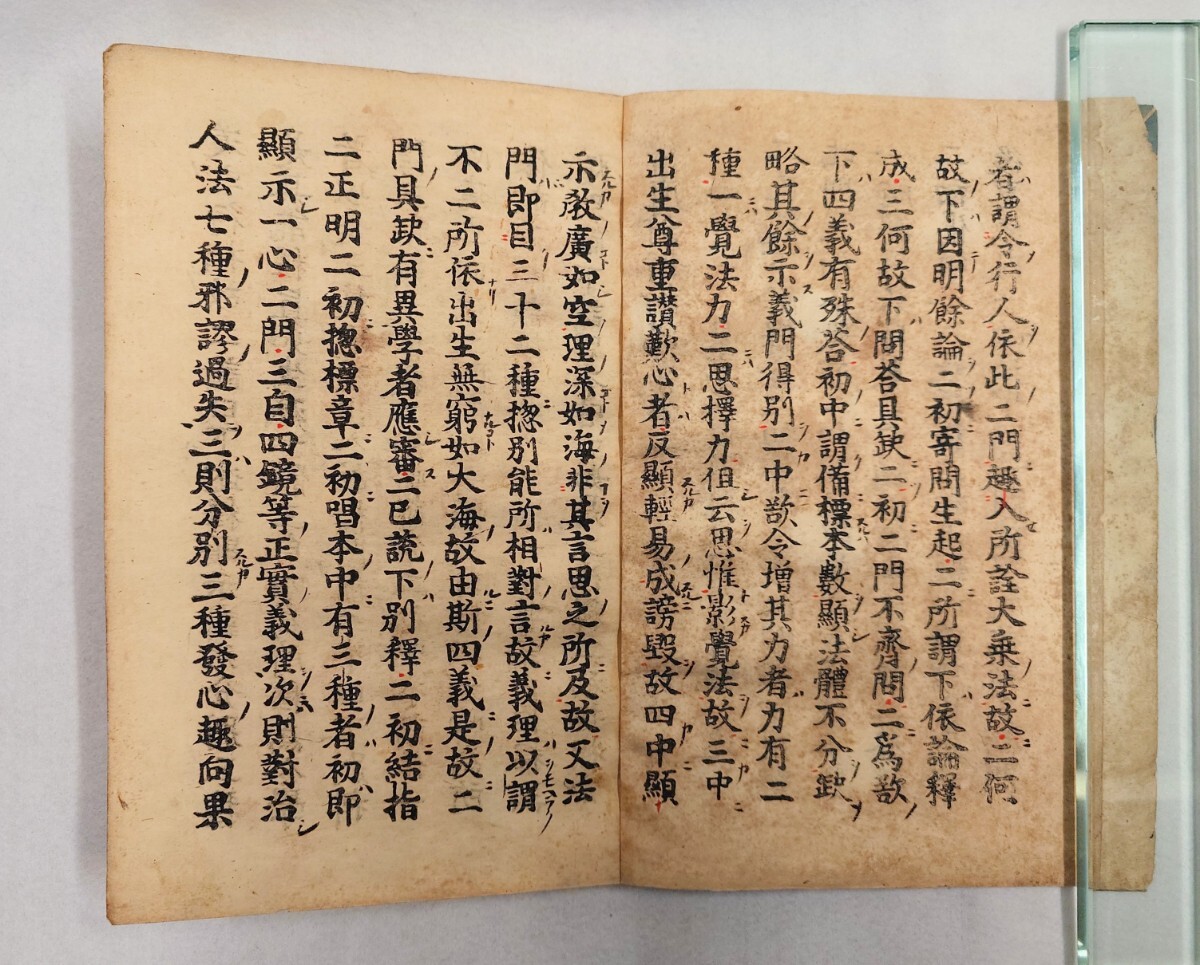 者謂令行人依此二門趣入所詮大乗法故二何
故下因明餘論二初寄問生起二所謂下依論釋
成三何故下問荅具缺二初二門不齊問二爲欲
下四義有殊荅初中謂備標本數顯法體不分缺
略其餘示義門得別二中欲令增其力者力有二
種一覺法力二思擇力但云思惟影覺法故三中
出生尊重讃歎心者反顯輕易成謗毀故四中顯
示教廣如空理深如海非其言思之所及故又法
門即目三十二種揔別能所相對言故義理以謂
不二所依出生無窮如大海故由斯四義是故二
門具缺有異學者應審二已説下別釋二初結指
二正明二初揔標章二初唱本中有三種者初即
顯示一心二門三自四鏡等正實義理次則對治
人法七種邪謬過失三則分別三種發心趣向果